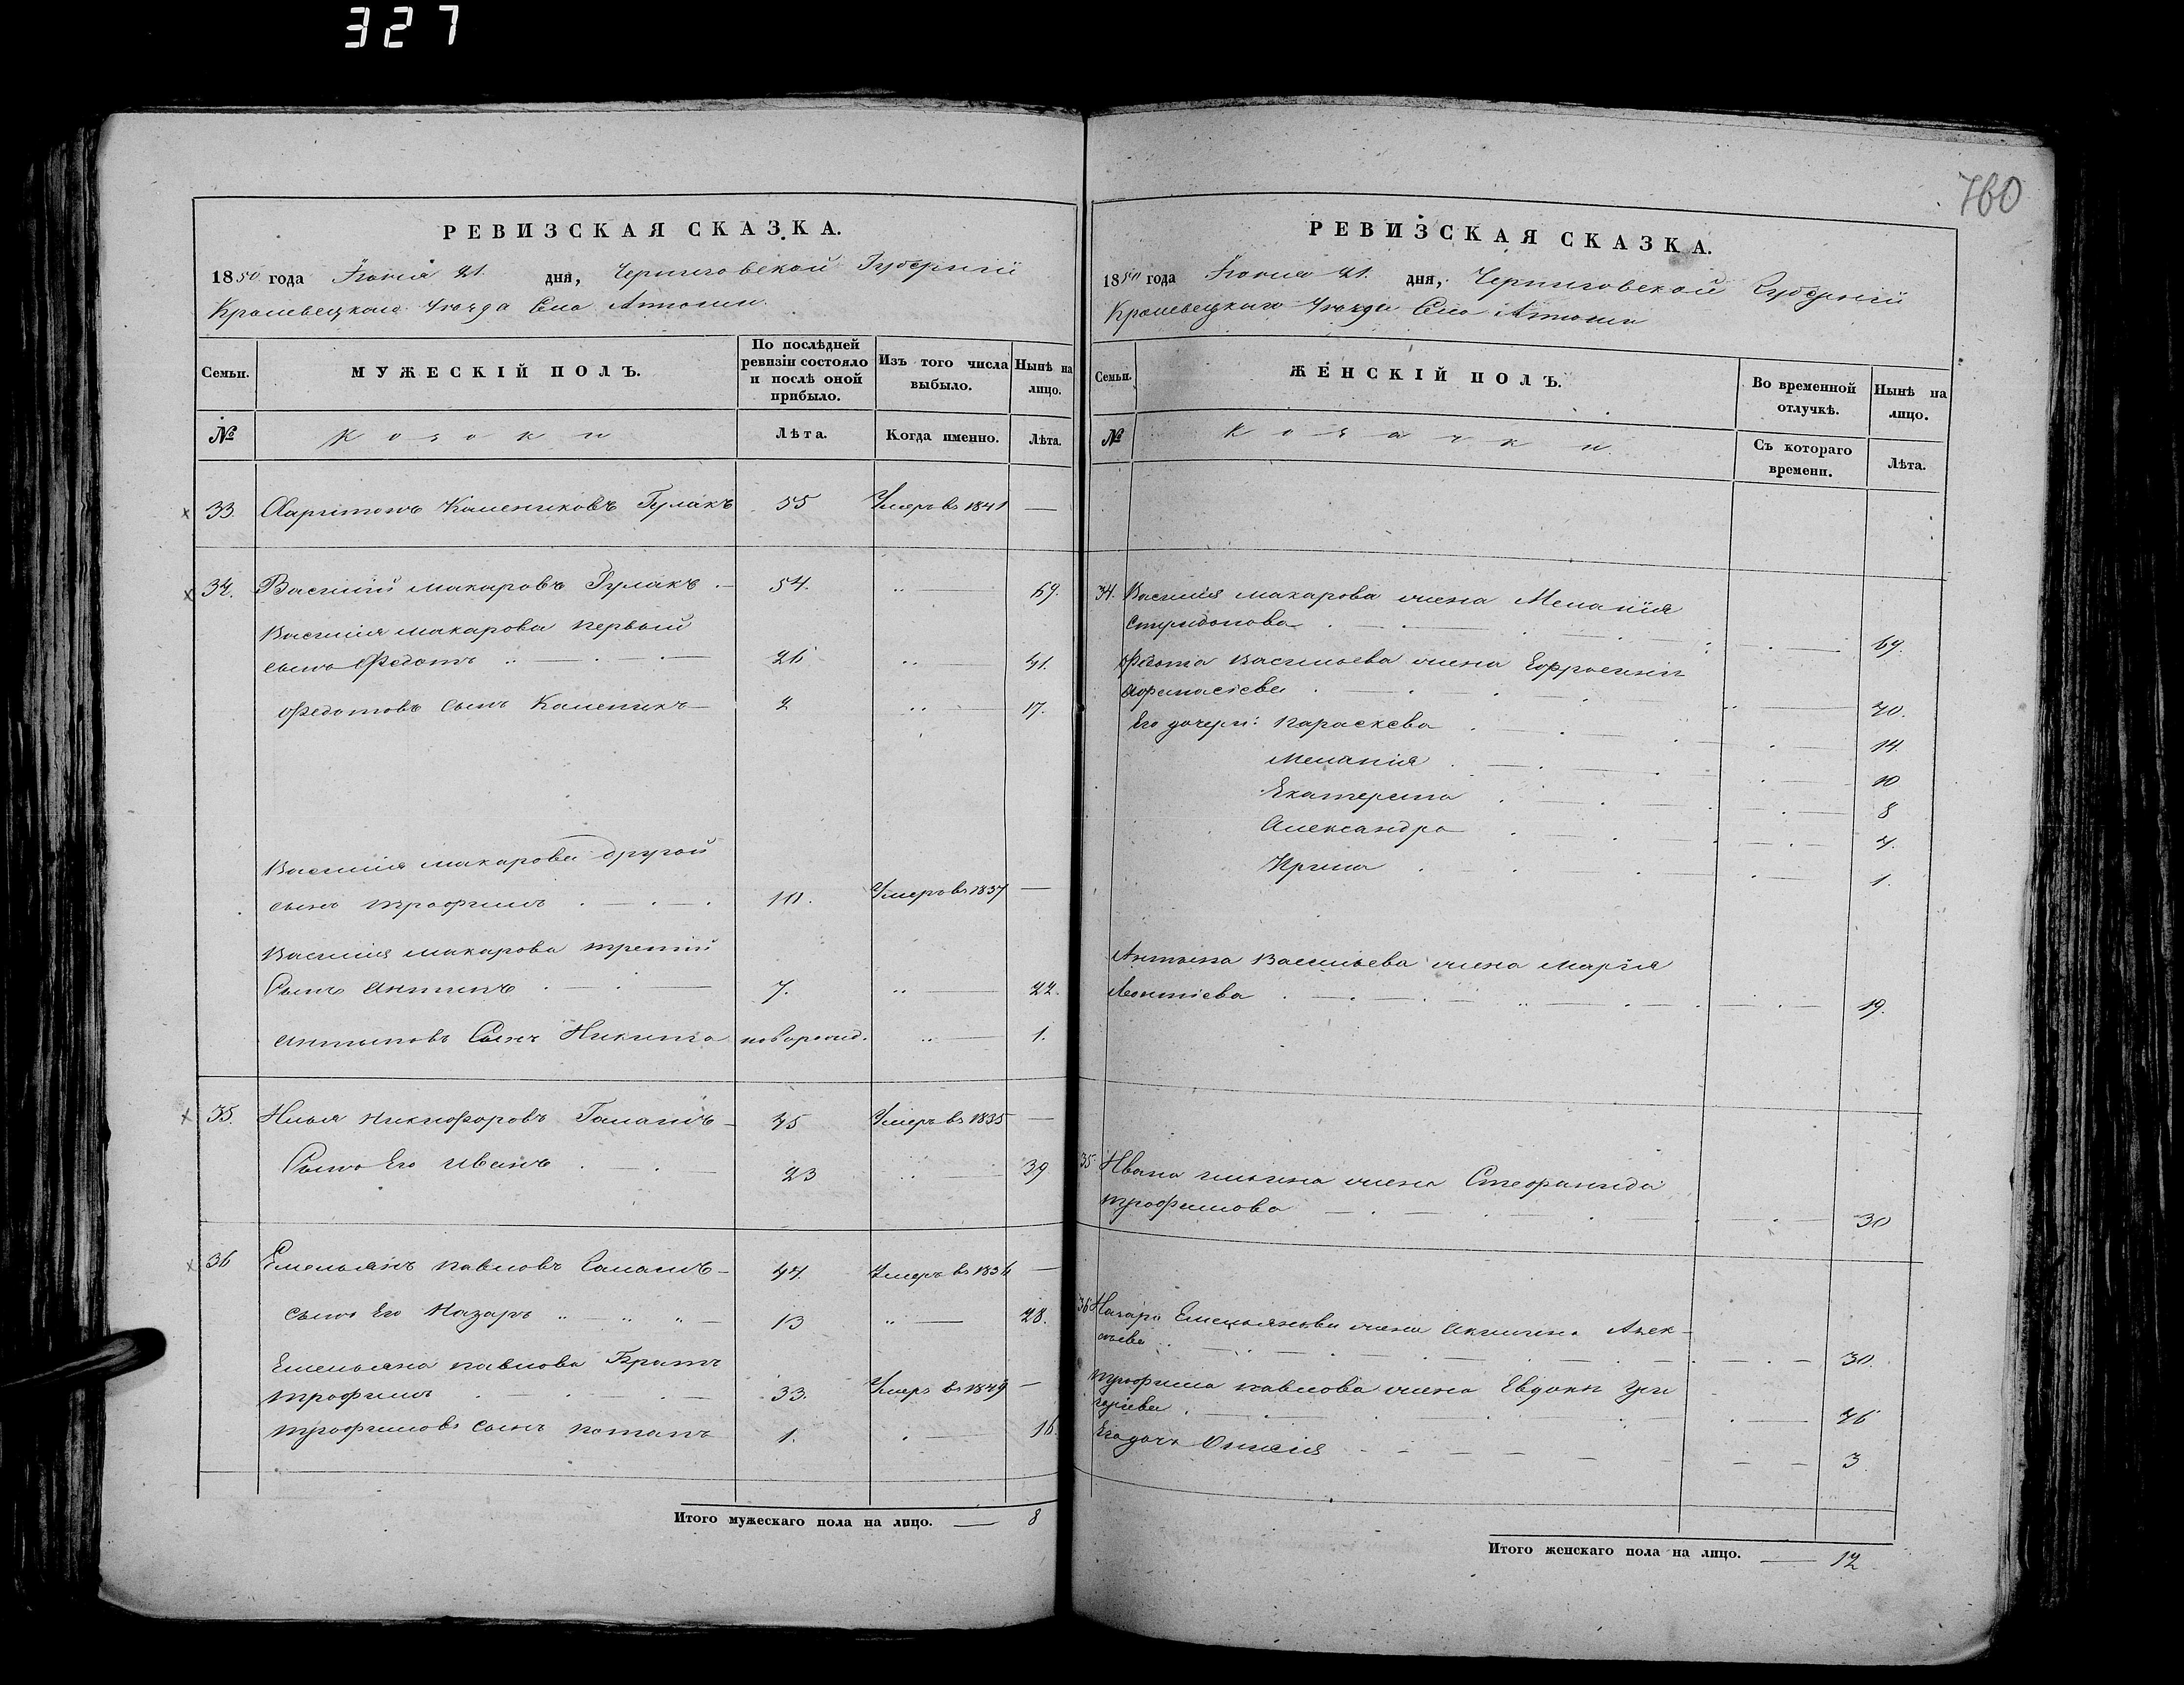 327
РЕВИЗСКАЯ СКАЗКА.
1850 года Іюня 21. дня, Черниговской Губерніи
Кролевецкого Уезда Села
Семьи. МУЖЕСКІЙ ПОЛЪ. По послѣдней ревизіи состояло и послѣ оной прибыло. Изъ того числа выбыло. Нынѣ на лицо.
№ Козаки Лѣта. Когда именно. Лѣта.
33. Харитонъ Калениковъ Гулакъ 55 Умеръ въ 1841 —
34. Василий Макаровъ Гулакъ 54. „ — 69.
Василия Макарова первый
сынъ Федотъ 26 „ — 41.
Федотовъ сынъ Каленикъ 2 „ — 17.
Василия Макарова другой
сынъ Трофимъ 10. Умеръ въ 1837 —
Василия Макарова третий
Сынъ Антипъ 7. „ — 22.
Антиповъ Сынъ Никита новорожд. „ — 1.
35. Илья Никифоровъ 45 Умеръ въ 1835 —
Сынъ Его Иванъ 23 „ — 39
36 Емельянъ Павловъ 44. Умеръ въ 1836 —
сынъ Его Назаръ 13 „ — 28.
Емельяна Павлова Братъ
Трофимъ 33. Умеръ въ 1849 —
Трофимовъ сынъ Потапъ 1. — 16.
Итого мужескаго пола на лицо. — 8
760
РЕВИЗСКАЯ СКАЗКА.
1850 года Іюня 21. дня, Черниговской Губерніи
Кролевецкого Уезда Села
Семьи. ЖЕНСКІЙ ПОЛЪ. Во временной отлучкѣ. Нынѣ на лицо.
№ Козачки. Съ котораго времени. Лѣта.
34. Василия Макарова жена Меланія
Спиридонова 69.
Федота Васильева жена Ефросиния
Афанасіева 40.
Его дочери: Параскева 14.
Меланія 10
Екатерина 8
Александра 4.
Ирина 1.
Антипа Васильева жена Марія
Леонтіева 19.
35. Ивана Ильина жена Стефанида
Трофимова 30
36 Назара Емельянова жена Акилина Алек-
сѣева 30.
Трофима Павлова жена Евдокия Гри
горіева 46
Его дочь 3.
Итого женскаго пола на лицо. — 12